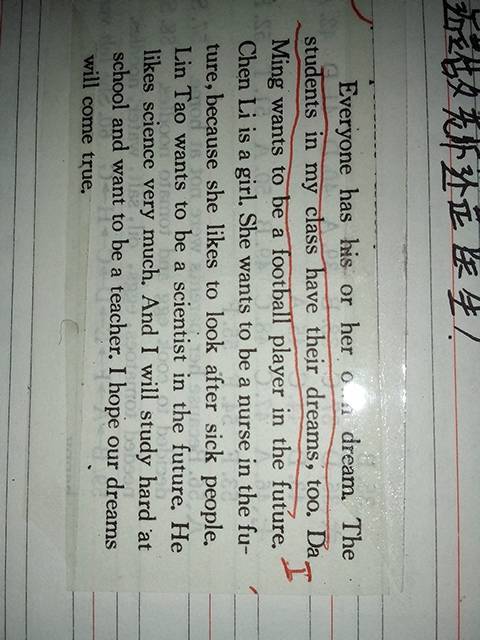 医生!
Everyone has his or her own dream. The
students in my class have their dreams, too. Da
Ming wants to be a football player in the future.
Chen Li is a girl. She wants to be a nurse in the fu-
ture, because she likes to look after sick people.
Lin Tao wants to be a scientist in the future. He
likes science very much. And I will study hard at
school and want to be a teacher. I hope our dreams
will come true.